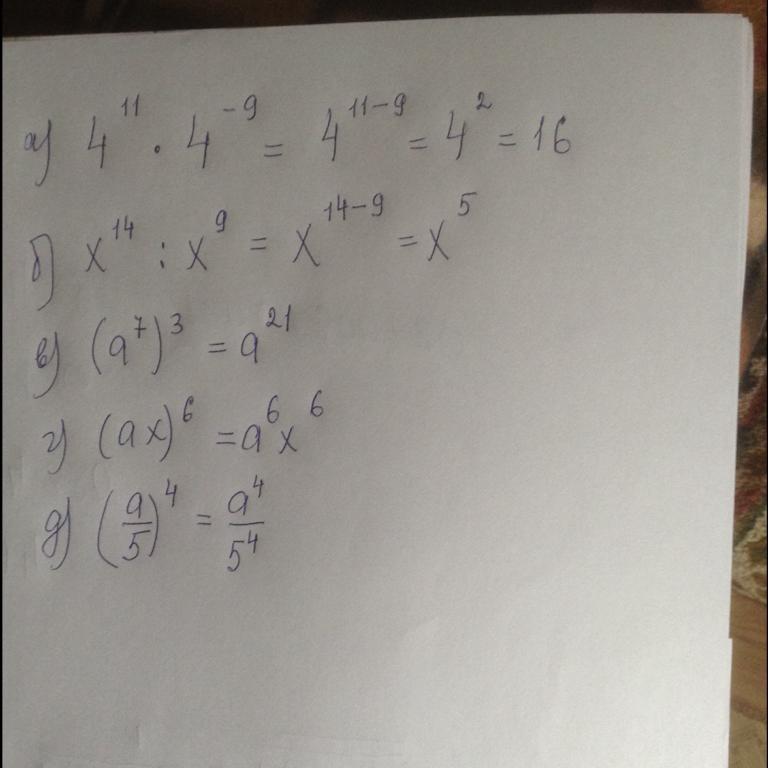 а) 4^11 · 4^-9 = 4^11-9 = 4^2 = 16
б) x^14 : x^9 = x^14-9 = x^5
в) (a^7)^3 = a^21
г) (ax)^6 = a^6 x^6
д) (a/5)^4 = a^4/5^4